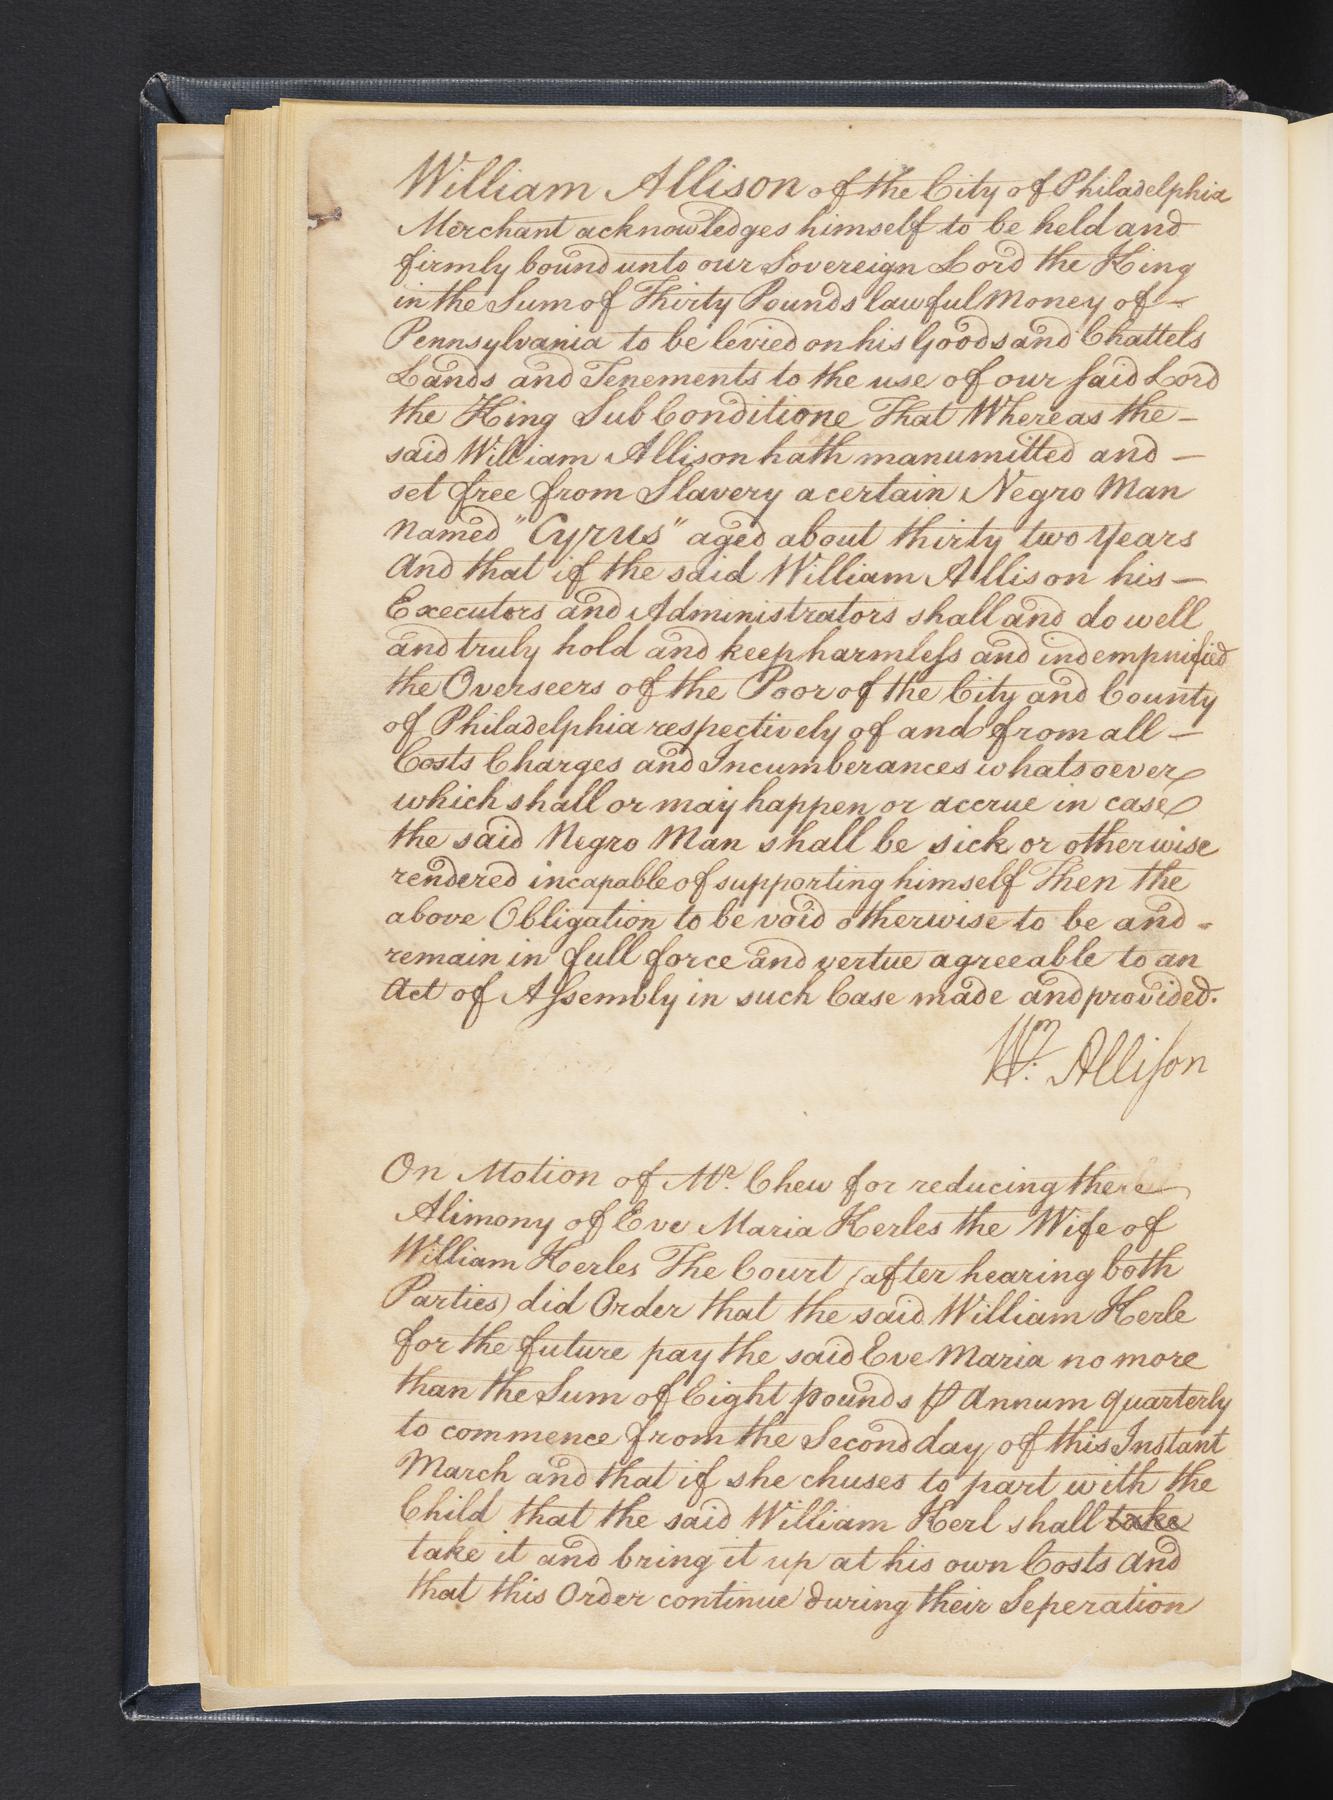 William Allison of the City of Philadelphia
Merchant acknowledges himself to be held and
firmly bound unto our Sovereign Lord the King
in the Sum of Thirty Pounds lawful Money of —
Pennsylvania to be levied on his Goods and Chattels
Lands and Tenements to the use of our said Lord
the King Sub Conditione That Whereas the —
said William Allison hath manumitted and —
set free from Slavery a certain Negro Man
Named "Cyrus" aged about thirty two Years
And that if the said William Allison his —
Executors and Administrators shall and do well
and truly hold and keep harmless and indempnified
the Overseers of the Poor of the City and County
of Philadelphia respectively of and from all —
Costs Charges and Incumberances whatsoever
which shall or may happen or accrue in case
the said Negro Man shall be sick or otherwise
rendered incapable of supporting himself Then the
above Obligation to be void otherwise to be and -
remain in full force and vertue agreeable to an
Act of Assembly in such Case made and provided.
Wm. Allison
On Motion of Mr. Chew for reducing the
Alimony of Eve Maria Kerles the Wife of
William Kerles The Court (after hearing both
Parties) did Order that the said William Kerle
for the future pay the said Eve Maria no more
than the Sum of Eight pounds ⅌ Annum quarterly
to commence from the Second day of this Instant
March and that if she chuses to part with the
Child that the said William Kerl shall take
take it and bring it up at his own Costs And
that this Order continue during their Seperation